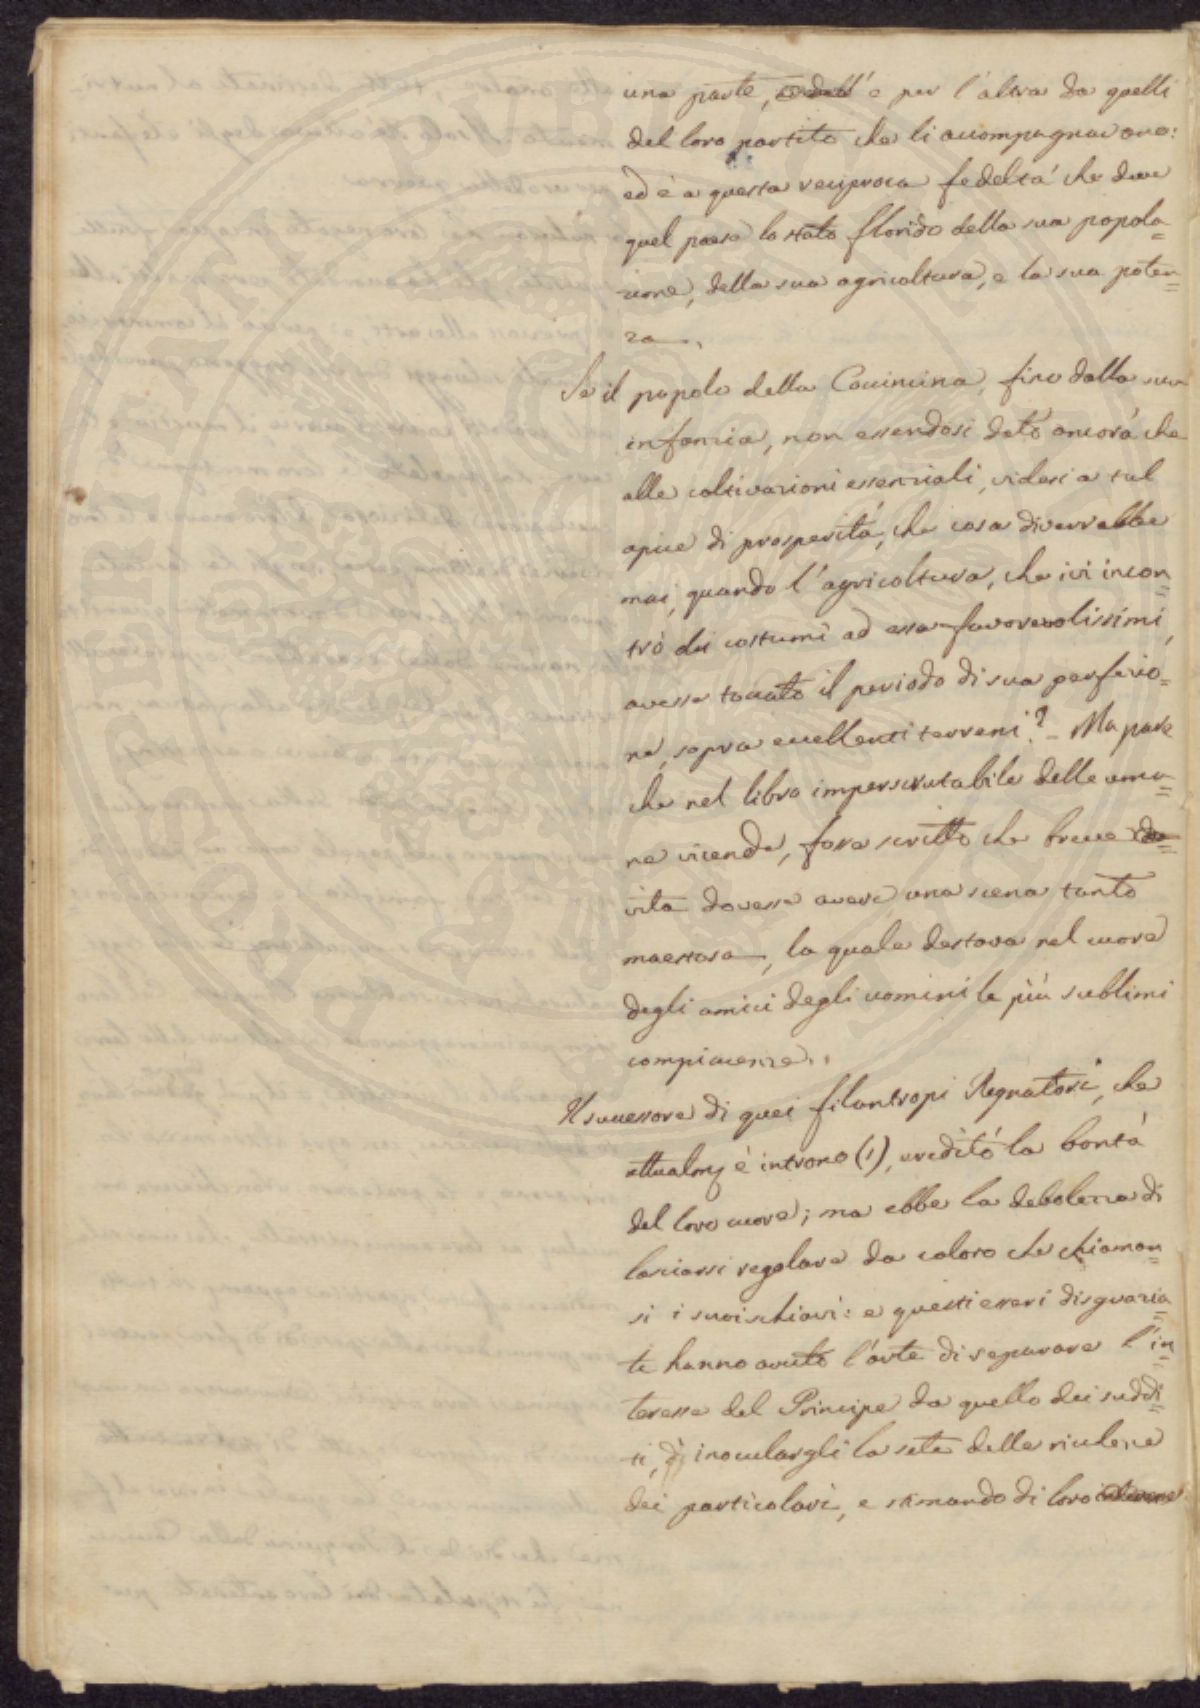 una parte, e per l'altra da quelli
del loro partito che li accompagnavano:
ed è a questa reciproca fedeltà che deve
quel paese lo stato florido della sua popola=
zione, della sua agricoltura, e la sua poten=
za.
Se il popolo della Cocincina, fino dalla sua
infanzia, non essendosi dato ancora che
alle coltivazioni essenziali, videsi a tal
apice di prosperità, che cosa diverrebbe
mai, quando l'agricoltura, che ivi incon=
trò dei costumi ad essa favorevolissimi,
avesse toccato il periodo di sua perfezio=
ne, sopra eccellenti terreni? - Ma pare
che nel libro imperscrutabile delle uma=
ne vicende, fosse scritto che breve
vita dovesse avere una scena tanto
maestosa, la quale destava nel cuore
degli amici degli uomini le più sublimi
compiacenze.
Il successore di quei filantropi Regnatori, che
attualmᵉ è in trono (1), ereditò la bontà
del loro cuore; ma ebbe la debolezza di
lasciarsi regolare da coloro che chiaman=
si i suoi schiavi: e questi esseri disgrazia=
ti hanno avuto l'arte di separare l'in=
teresse del Principe da quello dei suddi=
ti, di inoculargli la sete delle ricchezze
dei particolari, e stimando di loro